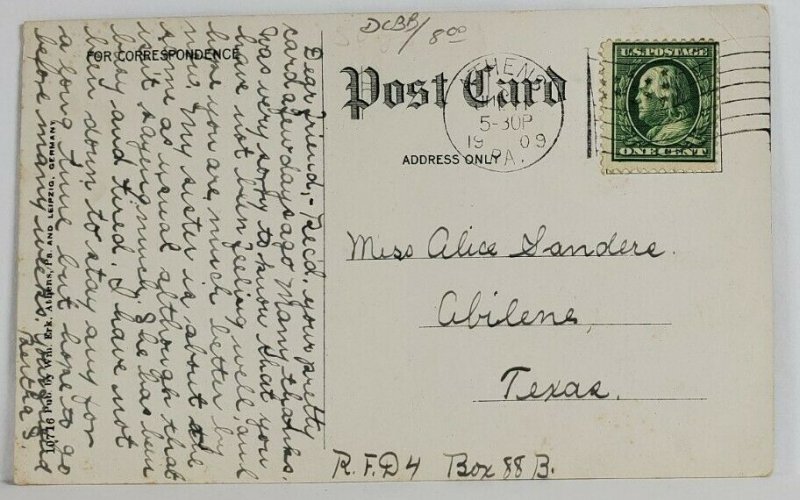 DCBB/800
FOR CORRESPONDENCE
Post Card
ADDRESS ONLY
ATHENS
5-30P
19 09
PA.
U.S. POSTAGE
ONE CENT
Dear Friend,- Rec'd. your pretty
card a few days ago. Many thanks.
Was very sorry to know that you
have not been feeling well, and
hope you are much better by
now. My sister is about the
same as usual although that
isn't saying much. She has been
busy and tired. I have not
been down to stay any for
a long time but hope to go
before many weeks. Your friend
Bertha S.
10716 Pub. by Wm. Erk, Athens, Pa. AND LEIPZIG, GERMANY
Miss Alice Sanders.
Abilene,
Texas.
R.F.D 4 Box 88 B.